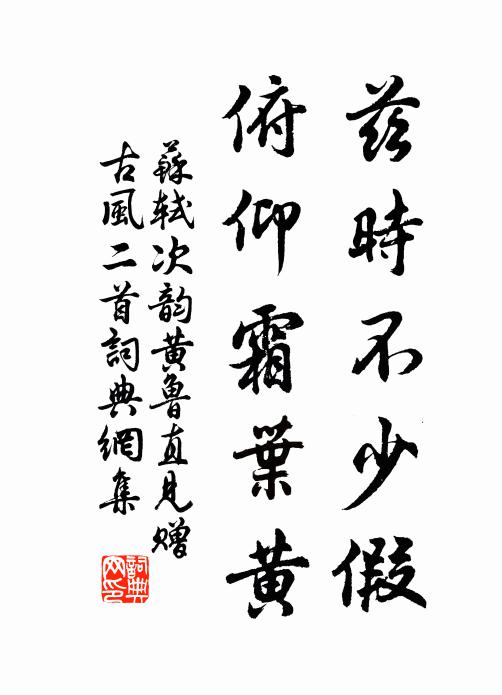 茲時不少假
俯仰霜葉黄
蘇軾次韵黄魯直見贈
古風二首詞典網集
詞典網印